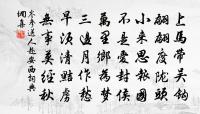 上馬帶吴鈎
翩翩度隴頭
小來思報國
不是愛封侯
萬里鄉為夢
三邊月作愁
早須清黠虜
無事莫經秋
岑參送人赴安西詞典
網書